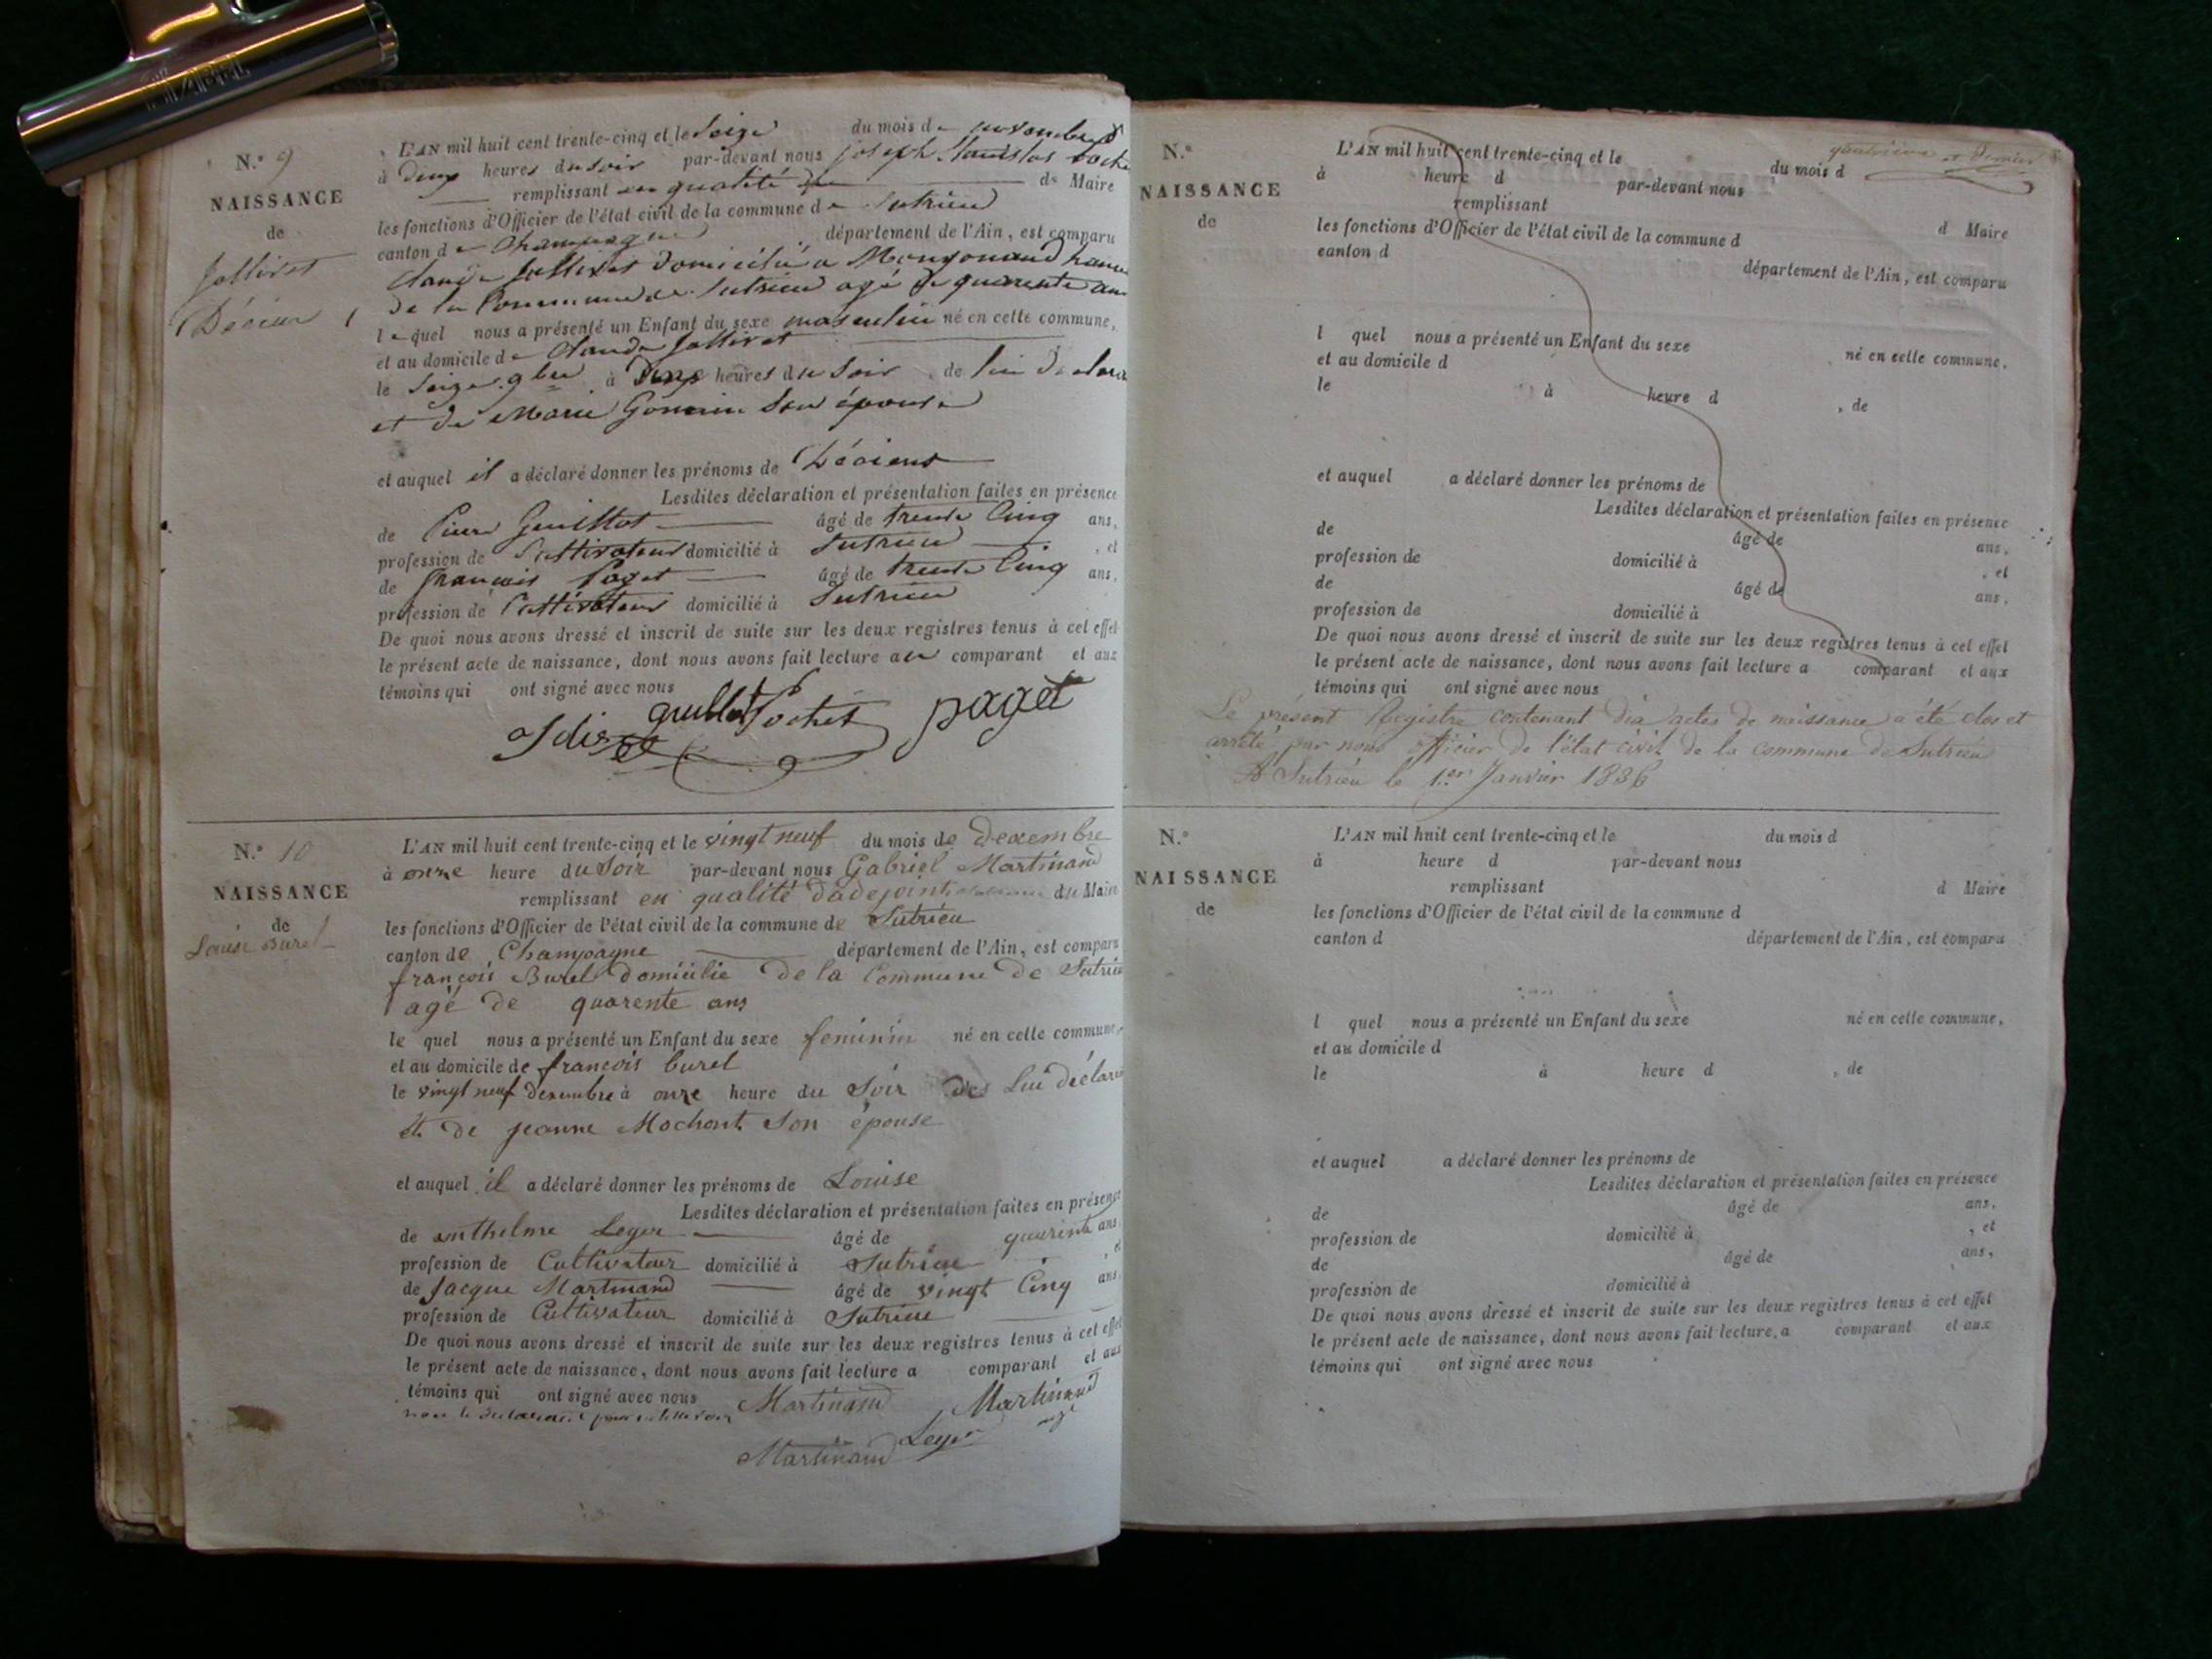 N.° 9
NAISSANCE
de
Jollivet
Décien
L'AN mil huit cent trente-cinq et le Seize du mois de novembre
à deux heures du soir par-devant nous joseph Stanislas
remplissant en qualité de Maire
les fonctions d'Officier de l'état civil de la commune de Sutrieu
canton de Champagne département de l'Ain, est comparu
Claude Jollivet domicilié a hameau
de la Commune de Sutrieu agé de quarente ans
lequel nous a présenté un Enfant du sexe masculin né en cette commune,
et au domicile de Claude Jollivet
le Seize 9bre à deux heures du Soir, de lui déclara
et de Marie Gonnin Son épouse
et auquel il a déclaré donner les prénoms de
Lesdites déclaration et présentation faites en présence
de Pierre Guillot âgé de trente Cinq ans,
profession de Cultivateur domicilié à Sutrieu, et
de françois Paget âgé de trente Cinq ans,
profession de Cultivateur domicilié à Sutrieu
De quoi nous avons dressé et inscrit de suite sur les deux registres tenus à cet effet
le présent acte de naissance, dont nous avons fait lecture au comparant et aux
témoins qui ont signé avec nous
guillot paget
N.° 10
NAISSANCE
de
Louise Burel
L'AN mil huit cent trente-cinq et le vingt neuf du mois de decembre
à onze heure du Soir par-devant nous Gabriel Martinand
remplissant en qualité dadejoint du Maire
les fonctions d'Officier de l'état civil de la commune de Sutrieu
canton de Champagne département de l'Ain, est comparu
françois Burel domicilie de la Commune de Sutrieu
agé de quarente ans
le quel nous a présenté un Enfant du sexe feminin né en cette commune,
et au domicile de françois burel
le vingt neuf decembre à onze heure du Soir des Lui déclara
et de jeanne Mochont Son épouse
et auquel il a déclaré donner les prénoms de Louise
Lesdites déclaration et présentation faites en présence
de anthelme Leger âgé de quarente ans,
profession de Cultivateur domicilié à Sutrieu, et
de Jacque Martinand âgé de vingt Cinq ans,
profession de Cultivateur domicilié à Sutrieu
De quoi nous avons dressé et inscrit de suite sur les deux registres tenus à cet effet
le présent acte de naissance, dont nous avons fait lecture a comparant et aux
témoins qui ont signé avec nous Martinand Martinand
Martinand Leger
N.°
NAISSANCE
de
L'AN mil huit cent trente-cinq et le du mois d
à heure d par-devant nous
remplissant d Maire
les fonctions d'Officier de l'état civil de la commune d
canton d département de l'Ain, est comparu
l quel nous a présenté un Enfant du sexe né en cette commune,
et au domicile d
le à heure d , de
et auquel a déclaré donner les prénoms de
Lesdites déclaration et présentation faites en présence
de âgé de ans,
profession de domicilié à , et
de âgé de ans,
profession de domicilié à
De quoi nous avons dressé et inscrit de suite sur les deux registres tenus à cet effet
le présent acte de naissance, dont nous avons fait lecture a comparant et aux
témoins qui ont signé avec nous
Le présent Registre contenant dix actes de naissance a été clos et
arrêté par nous officier de l'état civil de la commune de Sutrieu
A Sutrieu le 1.er Janvier 1836
N.°
NAISSANCE
de
L'AN mil huit cent trente-cinq et le du mois d
à heure d par-devant nous
remplissant d Maire
les fonctions d'Officier de l'état civil de la commune d
canton d département de l'Ain, est comparu
l quel nous a présenté un Enfant du sexe né en cette commune,
et au domicile d
le à heure d , de
et auquel a déclaré donner les prénoms de
Lesdites déclaration et présentation faites en présence
de âgé de ans,
profession de domicilié à , et
de âgé de ans,
profession de domicilié à
De quoi nous avons dressé et inscrit de suite sur les deux registres tenus à cet effet
le présent acte de naissance, dont nous avons fait lecture, a comparant et aux
témoins qui ont signé avec nous